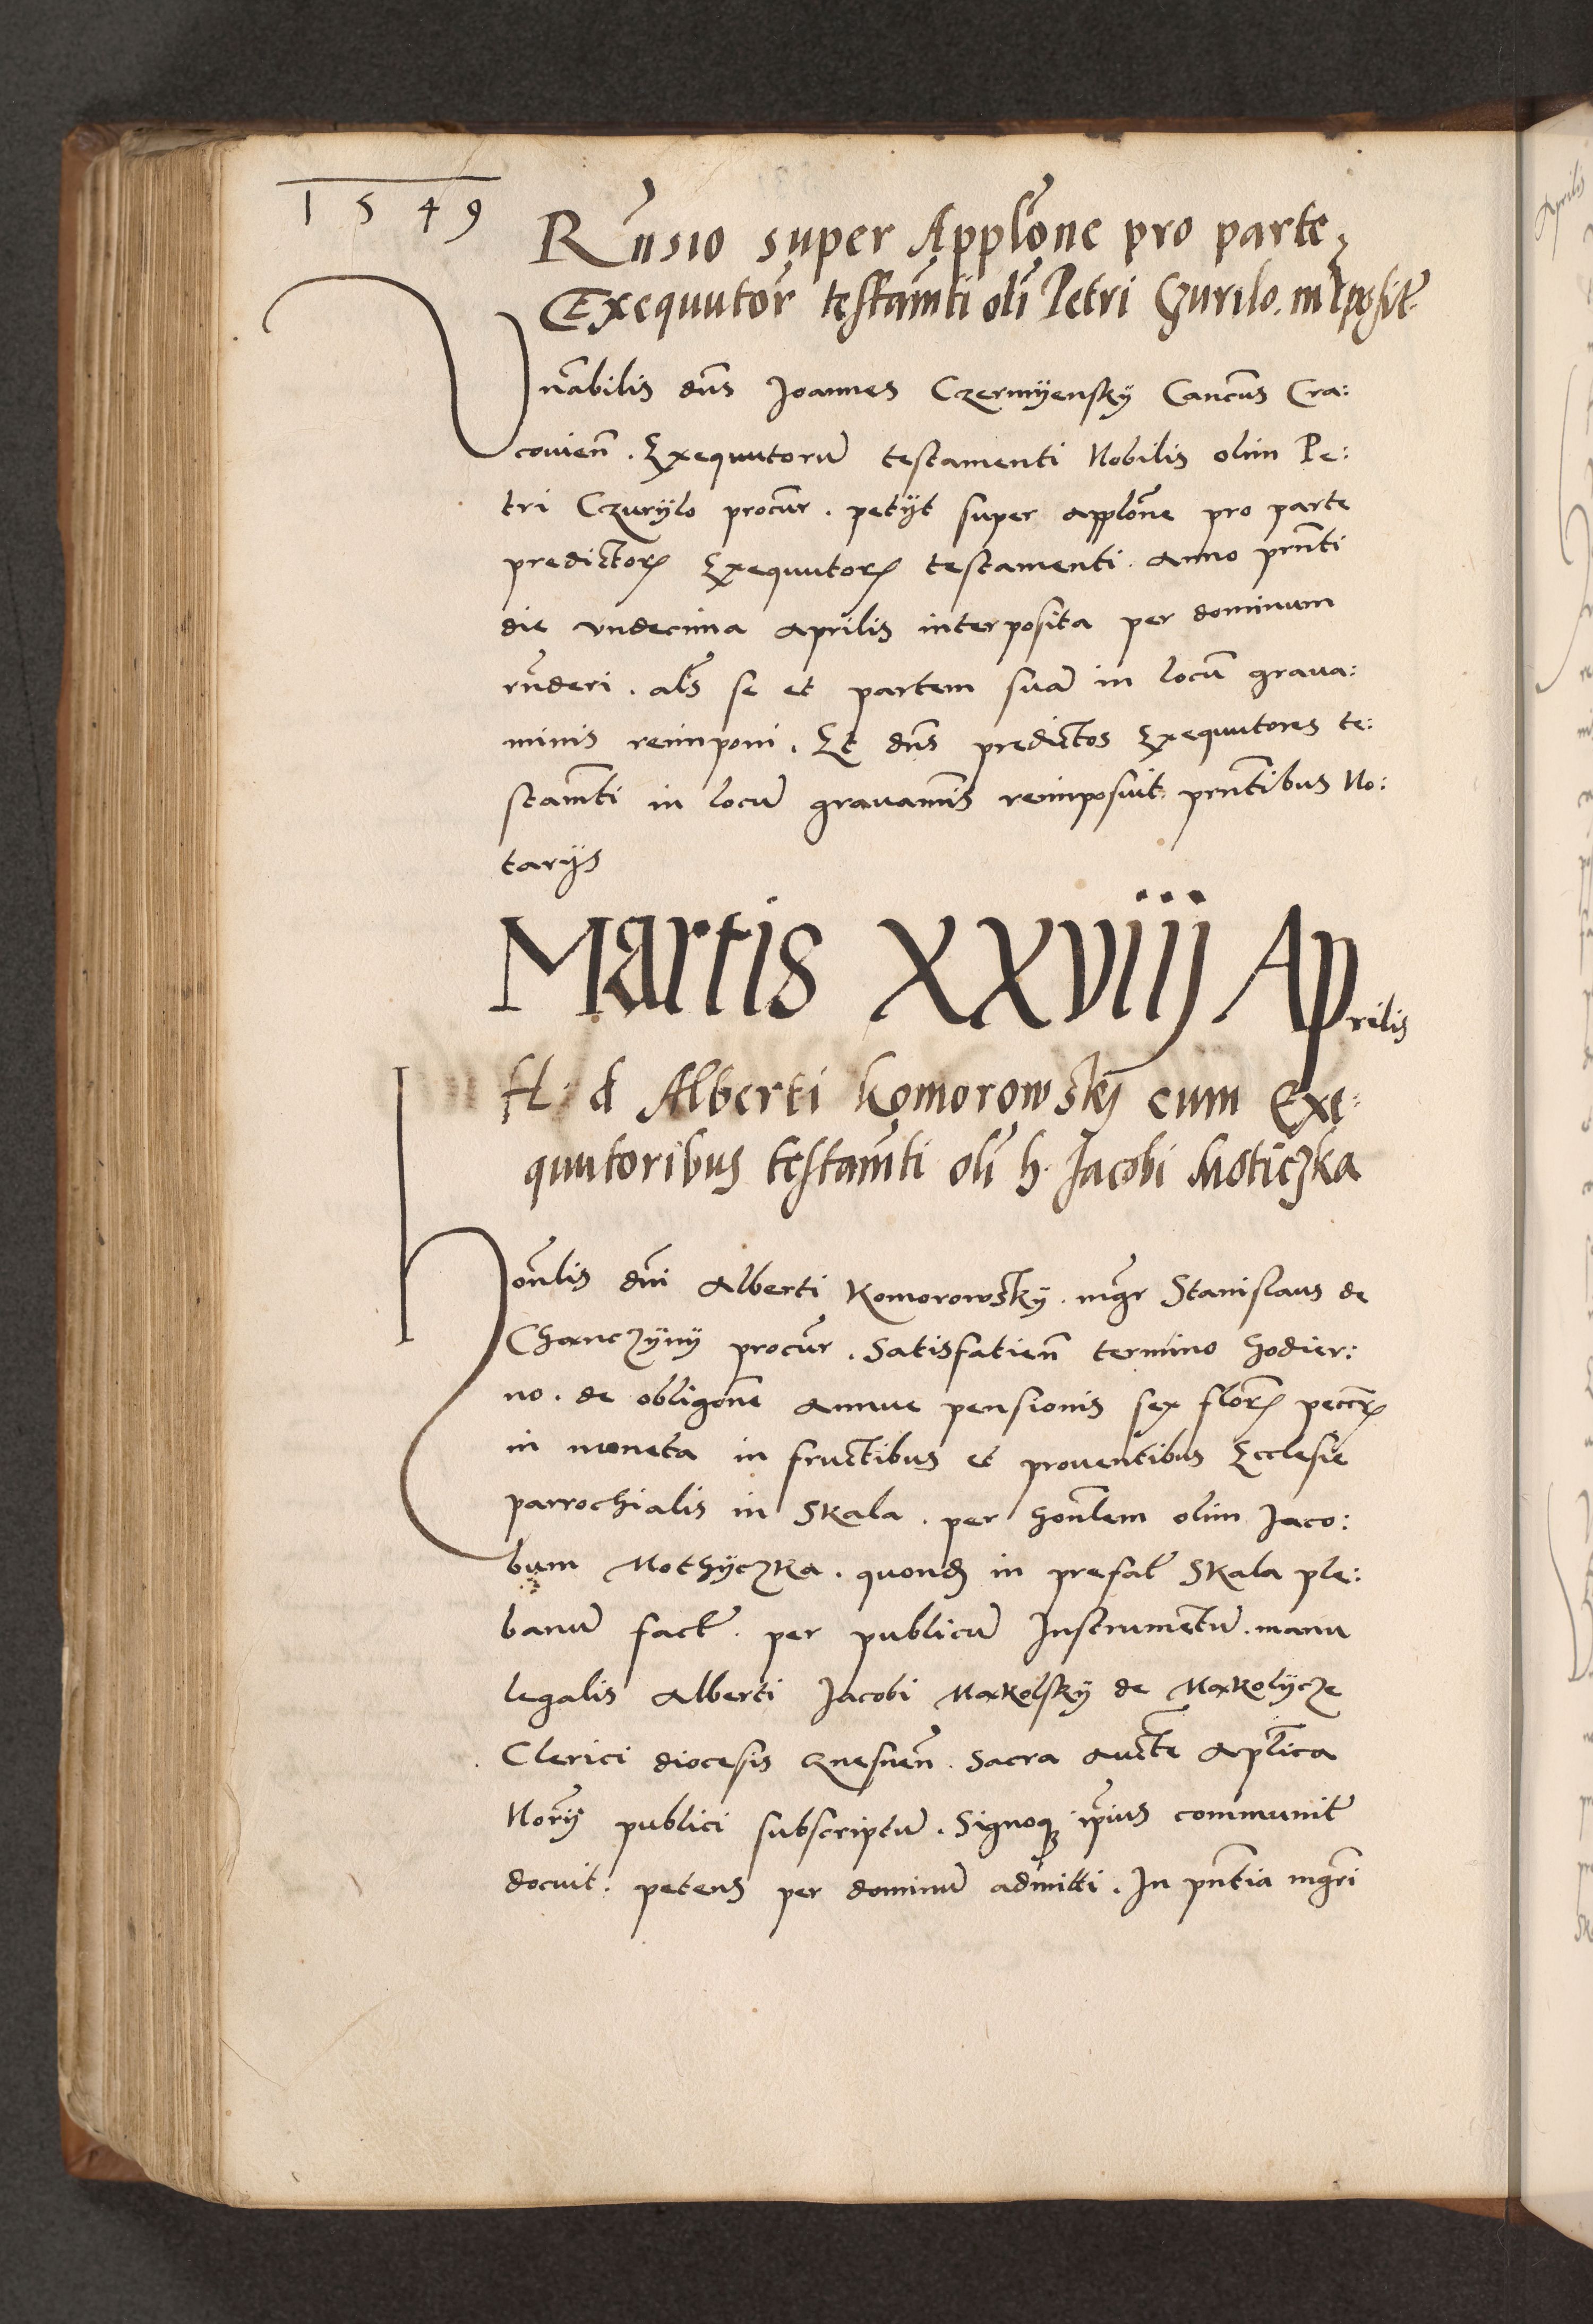 1549
Rnsio super Applone pro parte
Exequutor testamti oli Petri Czurilo. interposit.
Vnabilis dns Joannes Czermyensky Cancus Cra:
couien. Exequutoru testamenti Nobilis olim Pe:
tri Czurylo procur. petyt super applone pro parte
predictor Exequutor testamenti. anno prnti
die vndecima aprilis interposita per dominum
rnderi. als se et partem sua in locu graua:
minis reimponi. Et dns predictos Exequutores te:
stamti in locu grauamis reimposuit. prntibus No:
tarijs
Martis XXVIIJ Aprilis
H. d Alberti Komorowsky cum Exe:
quutoribus testamti oli h. Jacobi Moticzka
Honlis dni Alberti Komorowsky. mgr Stanislaus de
Chanczyny procur. Satisfatien termino hodier:
no. de obligone annue pensionis sex flor peccr
in moneta in fructibus et prouentibus Ecclesie
parrochialis in Skala. per honlem olim Jaco:
bum Mothyczka. quond in prefat Skala ple:
banu fact. per publicu Instrumentu. manu
legalis Alberti Jacobi Makolsky de Makolycze
Clerici diocesis Gnesnen. Sacra aucte Aplica
Norij publici subscriptu. Signoq ipius communit
docuit. petens per dominu admitti. In pntia mgri